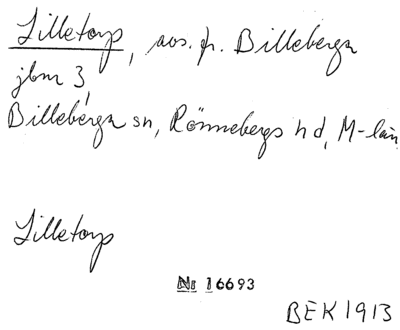 Lilletorp, avs. fr. Billeberga
jbm 3,
Billeberga sn, Rönnebergs hd, M-län
Lilletorp
Nr 16693
BEK 1913